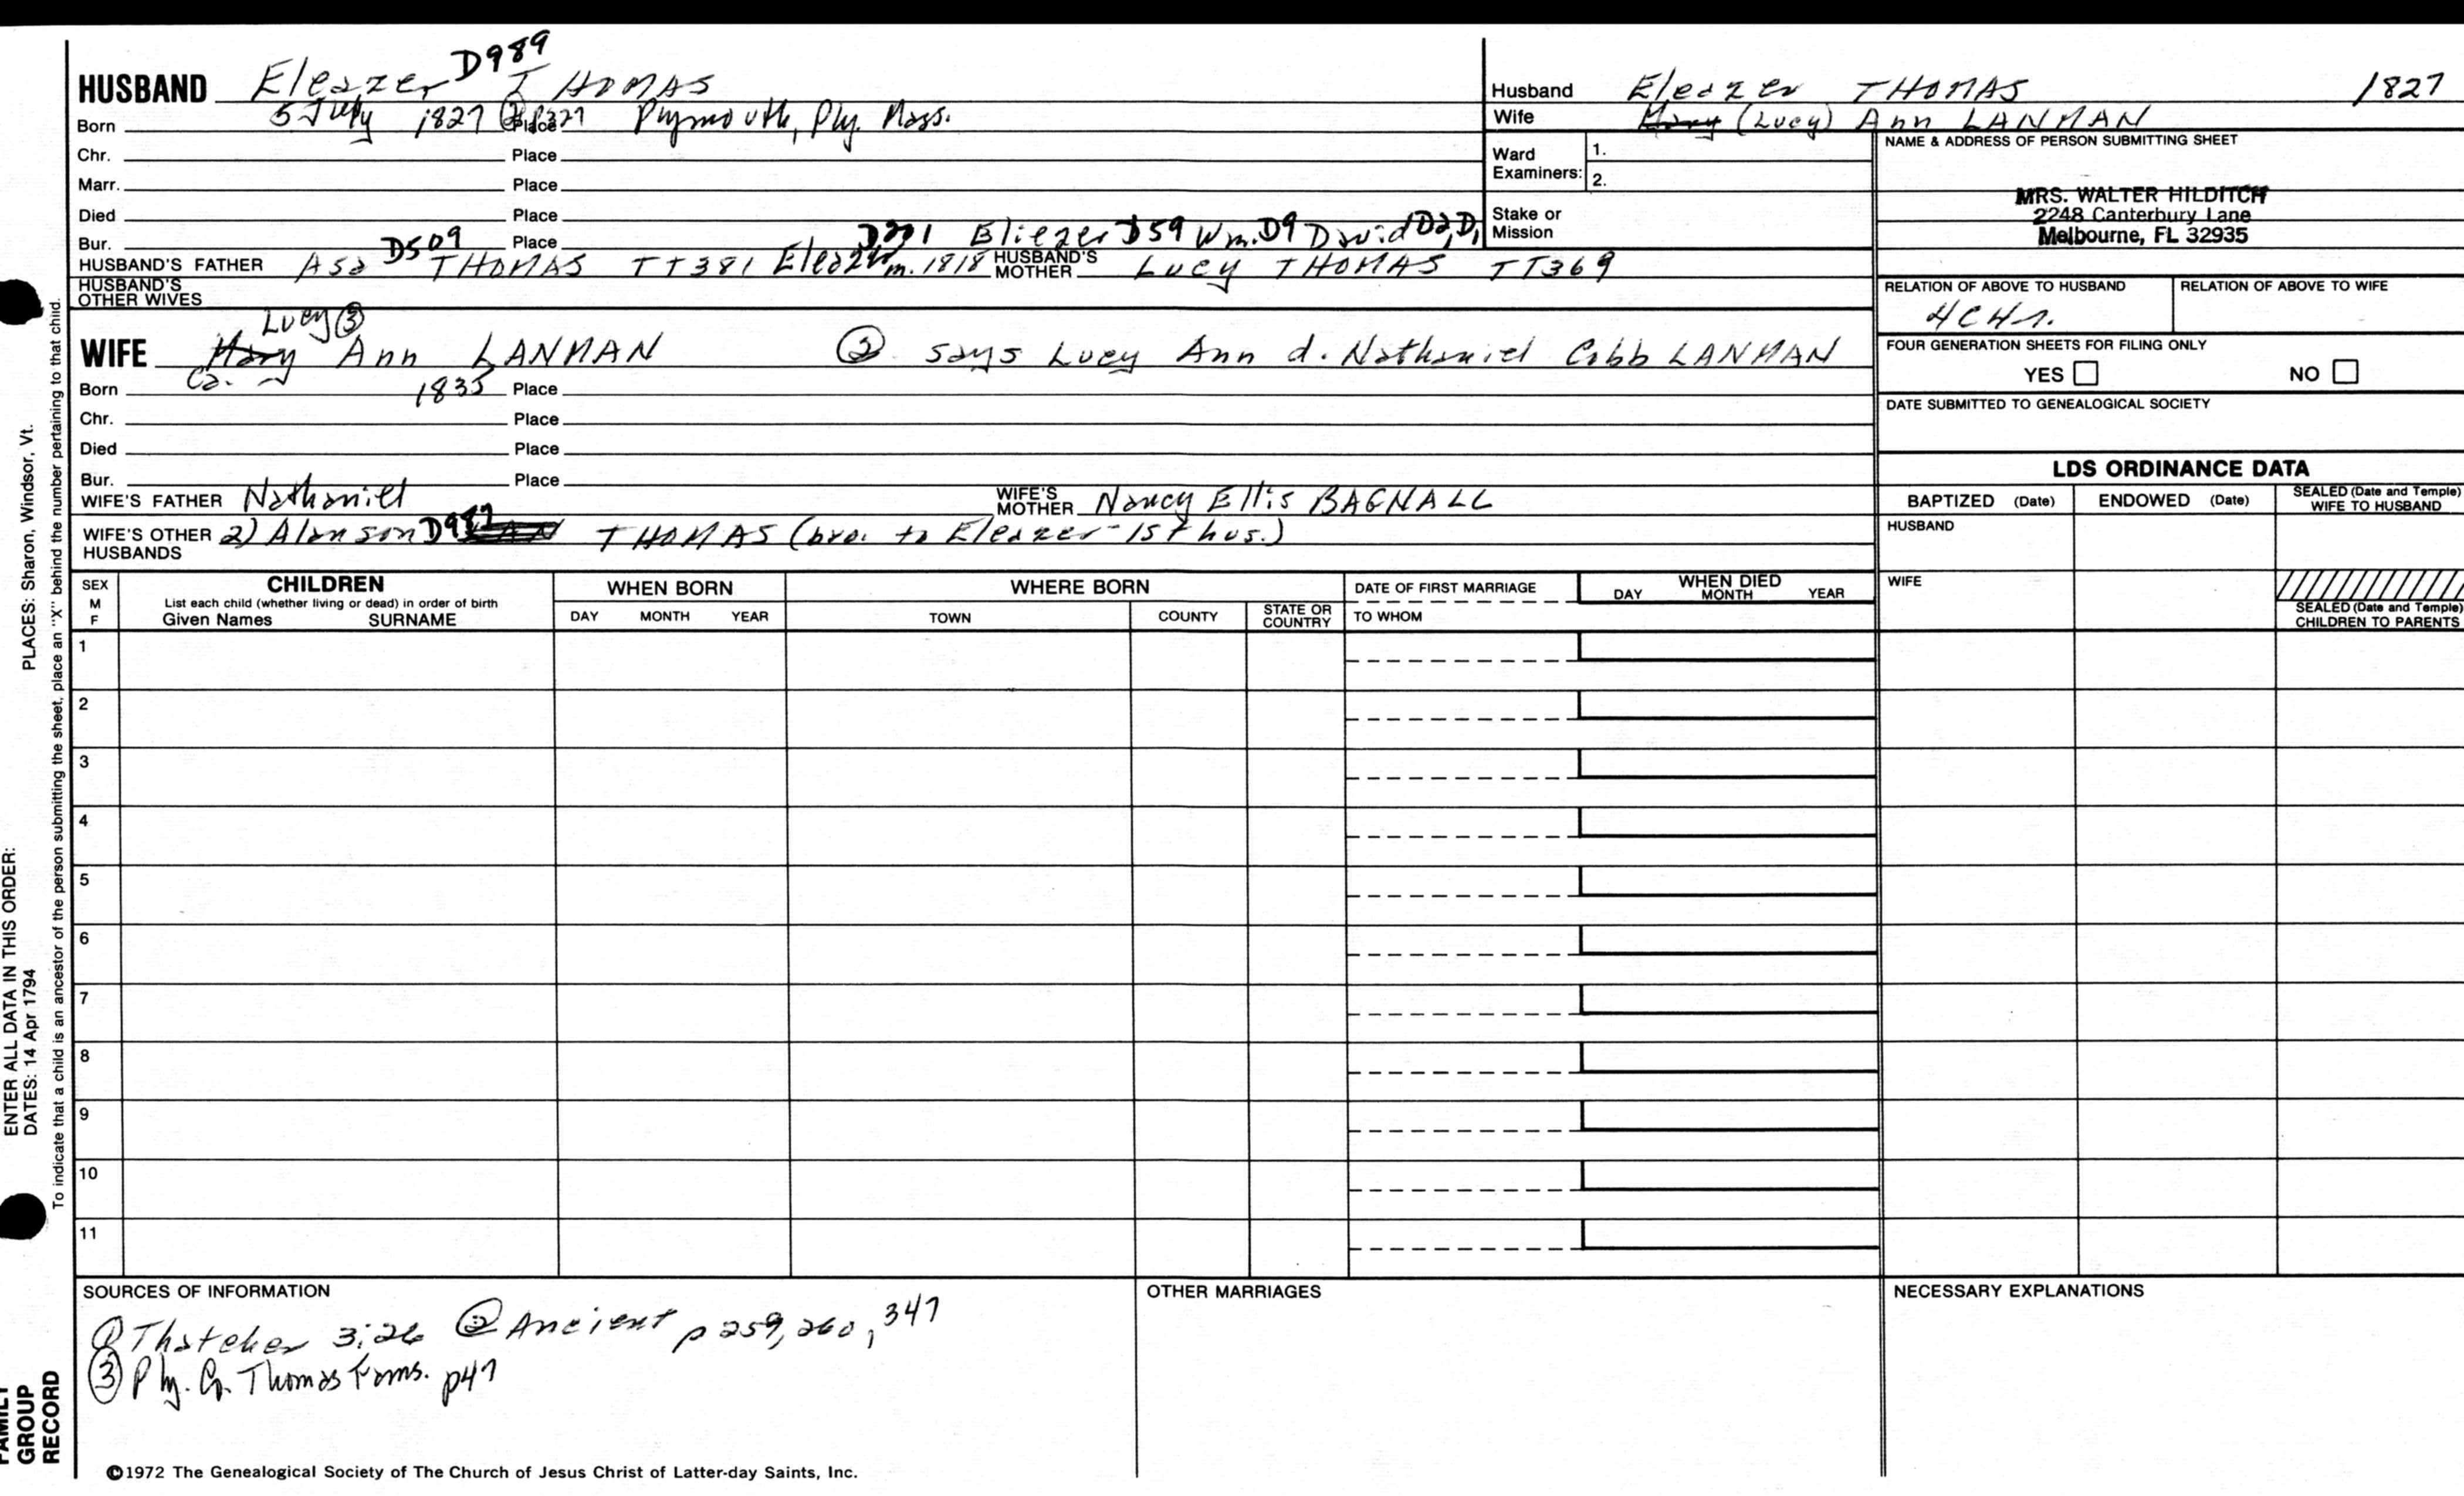 D989
HUSBAND Eleazer THOMAS
Born 5 July 1827 Place Plymouth, Ply. Mass.
Chr. Place
Marr. Place
Died Place
Bur. Place D201 Eliezer D59 Wm. D9 David D2, D1
D509
HUSBAND'S FATHER Asa THOMAS TT381 Eleazer m. 1818 HUSBAND'S MOTHER Lucy THOMAS TT369
HUSBAND'S OTHER WIVES
Lucy ③
WIFE Mary Ann LANMAN ② says Lucy Ann d. Nathaniel Cobb LANMAN
Born Ca. 1835 Place
Chr. Place
Died Place
Bur. Place
WIFE'S FATHER Nathaniel WIFE'S MOTHER Nancy Ellis BAGNALL
WIFE'S OTHER HUSBANDS 2) Alanson THOMAS (bro. to Eleazer - 1st hus.)
Husband Eleazer THOMAS 1827
Wife Mary (Lucy) Ann LANMAN
Ward Examiners: 1.
2.
Stake or Mission
NAME & ADDRESS OF PERSON SUBMITTING SHEET
MRS. WALTER HILDITCH
2248 Canterbury Lane
Melbourne, FL 32935
RELATION OF ABOVE TO HUSBAND RELATION OF ABOVE TO WIFE
FOUR GENERATION SHEETS FOR FILING ONLY
YES NO
DATE SUBMITTED TO GENEALOGICAL SOCIETY
LDS ORDINANCE DATA
BAPTIZED (Date) ENDOWED (Date) SEALED (Date and Temple) WIFE TO HUSBAND
HUSBAND
WIFE
SEALED (Date and Temple) CHILDREN TO PARENTS
SEX M F
CHILDREN
List each child (whether living or dead) in order of birth
Given Names SURNAME
WHEN BORN
DAY MONTH YEAR
WHERE BORN
TOWN COUNTY STATE OR COUNTRY
DATE OF FIRST MARRIAGE
TO WHOM
WHEN DIED
DAY MONTH YEAR
1
2
3
4
5
6
7
8
9
10
11
SOURCES OF INFORMATION
① Thatcher 3:26 ② Ancient p 259, 260, 347
③ Ply. Co. Thomas Fams. p47
OTHER MARRIAGES
NECESSARY EXPLANATIONS
©1972 The Genealogical Society of The Church of Jesus Christ of Latter-day Saints, Inc.
PLACES: Sharon, Windsor, Vt.
To indicate that a child is an ancestor of the person submitting the sheet, place an "X" behind the number pertaining to that child.
ENTER ALL DATA IN THIS ORDER:
DATES: 14 Apr 1794
FAMILY
GROUP
RECORD